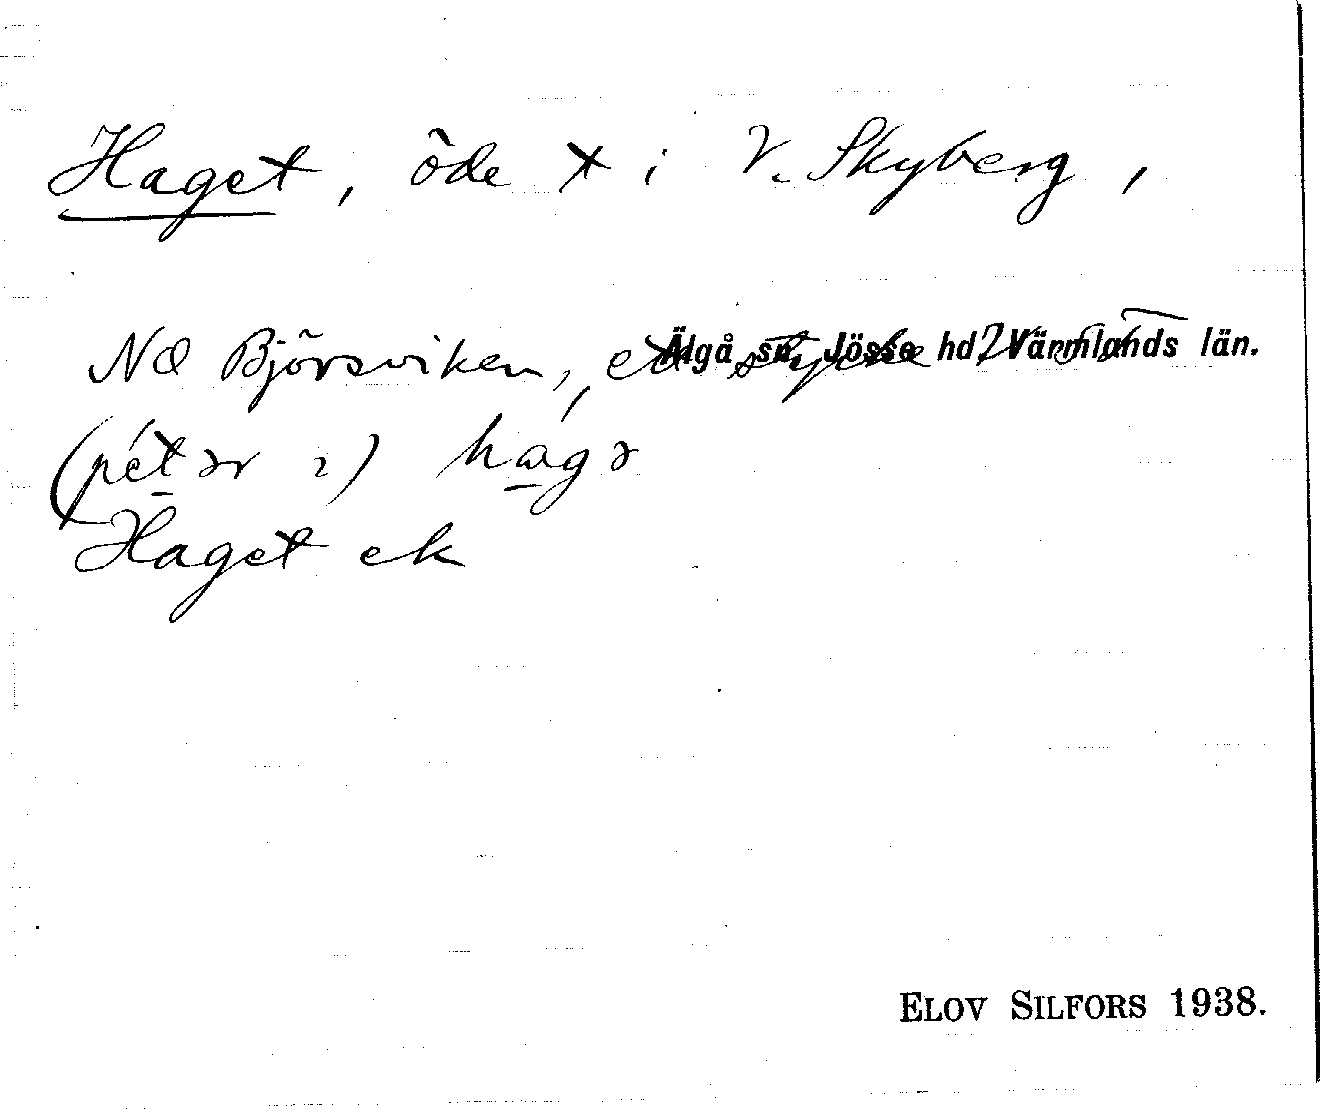 Haget, öde t i V. Skyberg,
NO Björsviken, ett stycke
Älgå sn, Jösse hd, Värmlands län.
(pétər 2) hágə
Haget ek
ELOV SILFORS 1938.